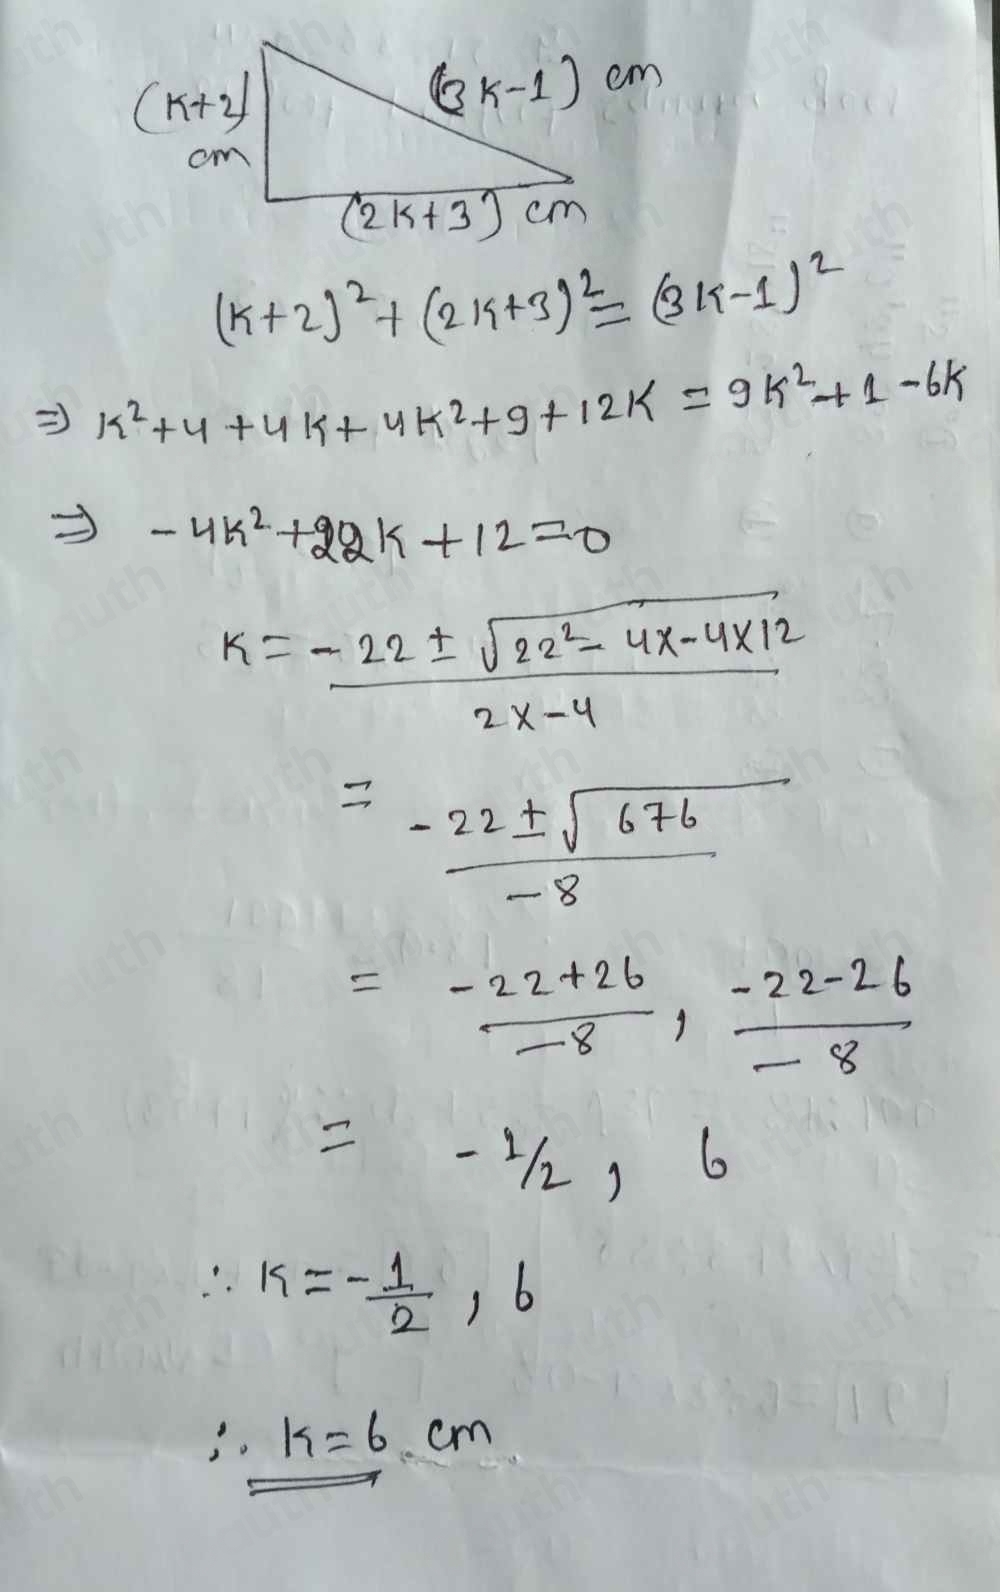 (k+2)
cm
(3k-1) cm
(2k+3) cm
(k+2)² + (2k+3)² = (3k-1)²
⇒ k²+4+4k+4k²+9+12k = 9k²+1-6k
⇒ -4k²+22k+12=0
k = -22 ± √22²- 4x-4x12
2x-4
= -22 ± √676
-8
= -22+26 , -22-26
-8 -8
= -1/2 , 6
∴ k = -1/2 , 6
∴ k=6 cm